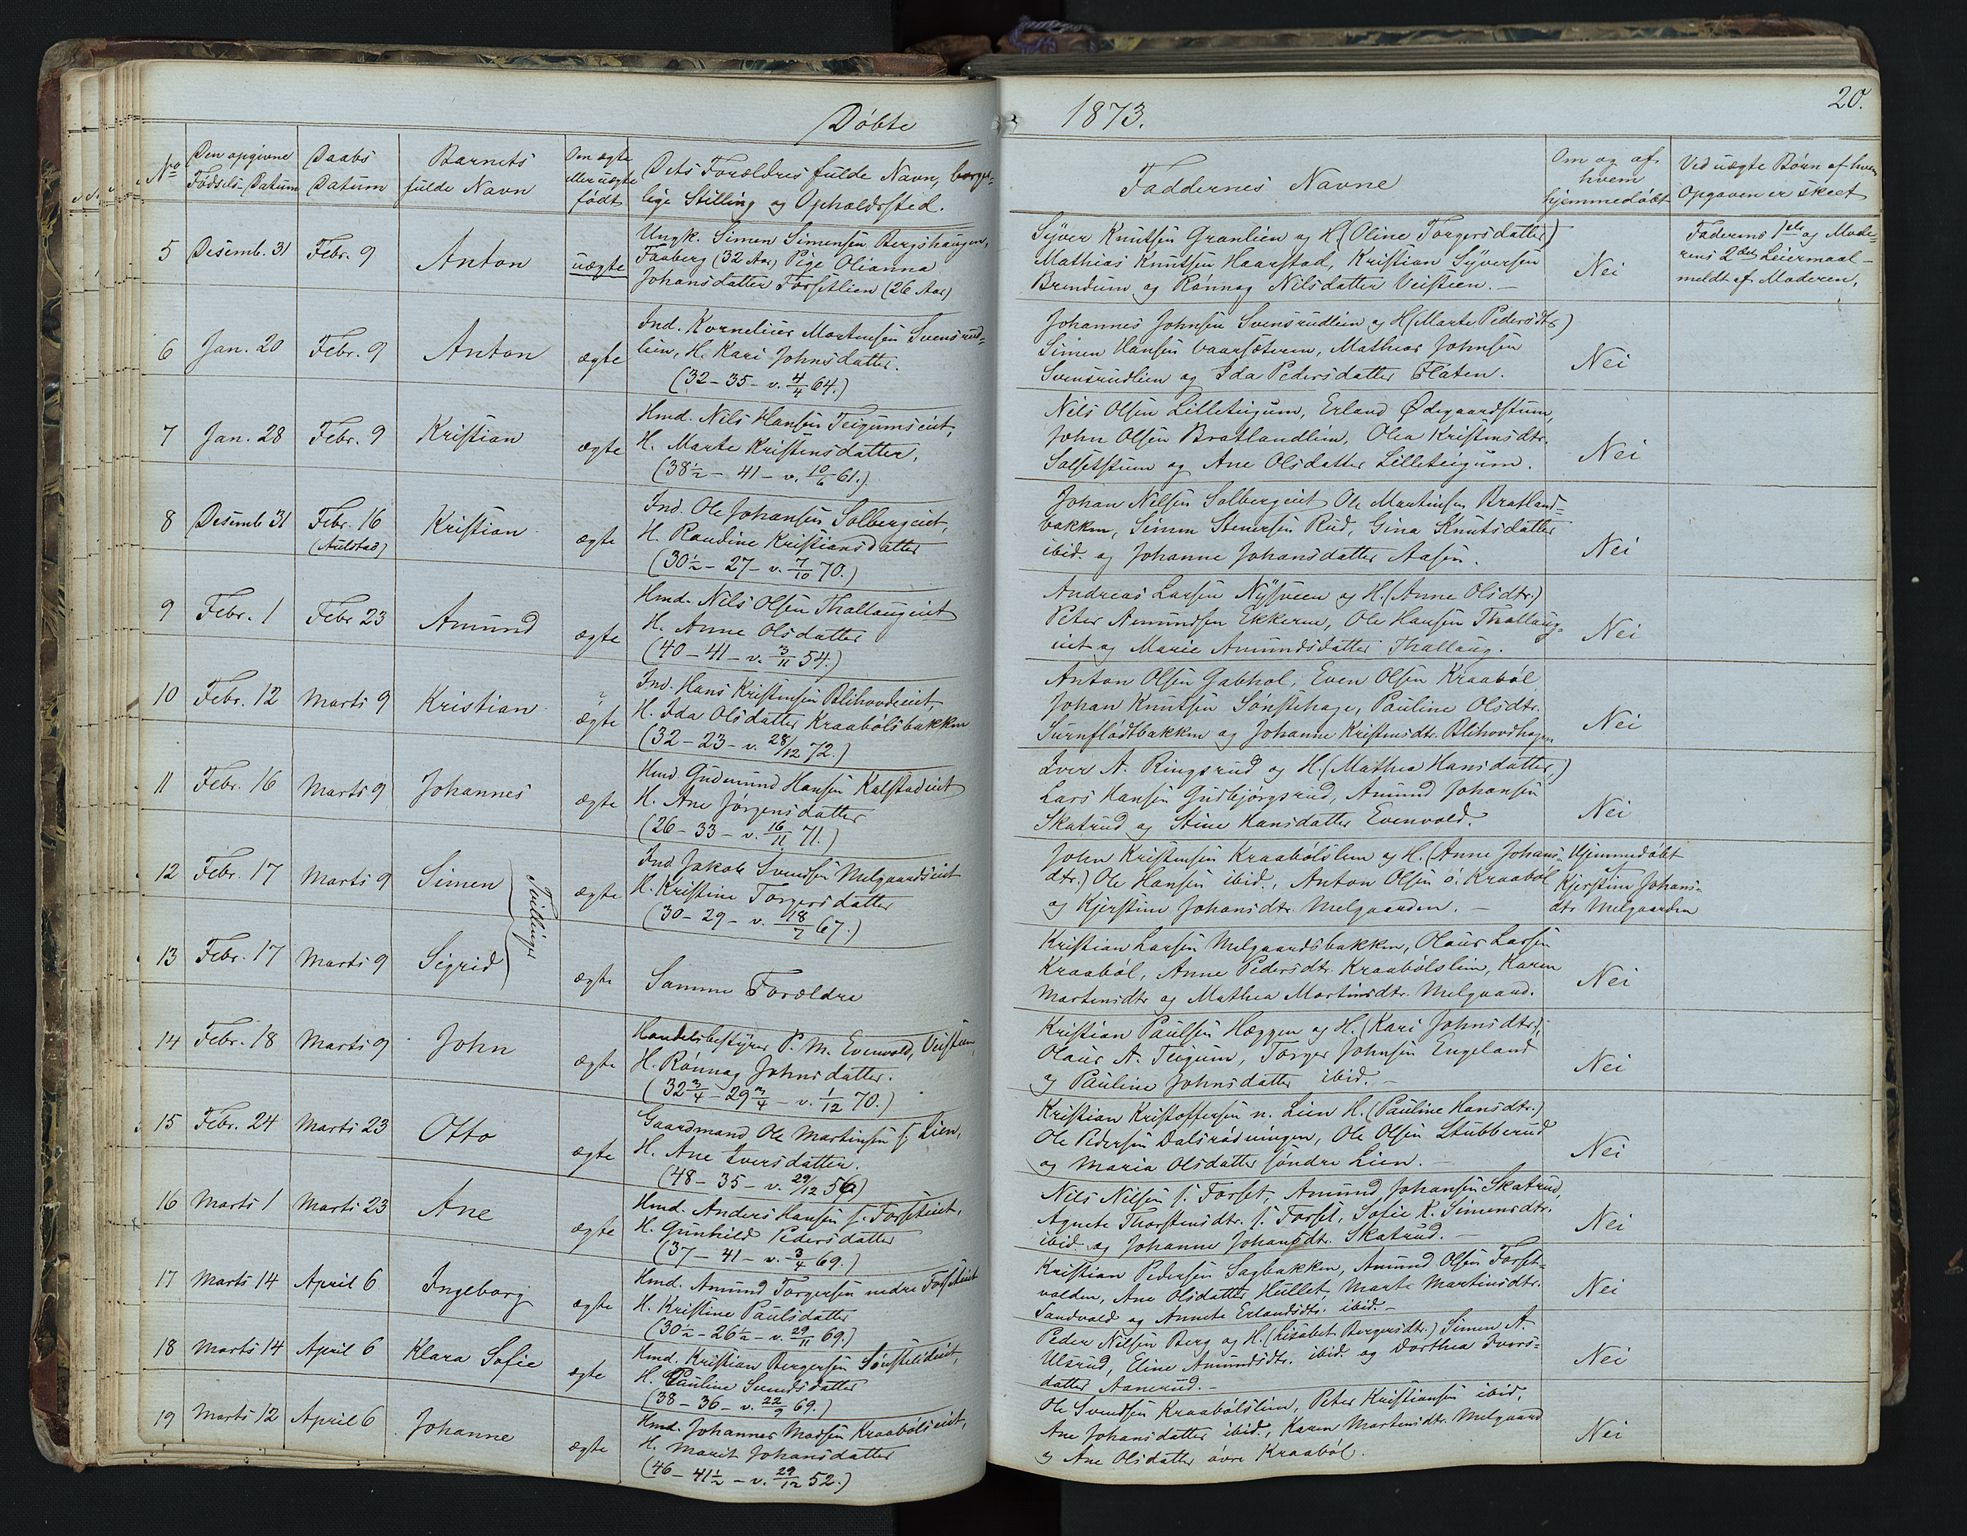 Døbte
1873.
20.
No
Den opgivne
Fødsels-Datum
Daabs
Datum
Barnets
fulde Navn
Om ægte
eller uægte
født
Dets Forældres fulde Navn, borger-
lige Stilling og Opholdssted.
Faddernes Navne
Om og af
hvem
hjemmedøbt
Ved uægte Børn af hvem
Opgaven er skeet
5 Desemb. 31 Febr. 9 Anton uægte
Ungk. Simen Simensen Bergshaugen,
Faaberg (32 Aar) Pige Olianna
Johansdatter Forsetlien (26 Aar)
Syver Knutsen Granlien og H. (Oline Torgersdatter)
Mathias Knutsen Haarstad, Kristian Syversen
Brendum og Rønnog Nilsdatter Veistien. –
Nei
Faderens 1ste og Mode-
rens 2det Leiermaal –
meldt af Moderen.
6 Jan. 20 Febr. 9 Anton ægte
Ind. Kornelius Mortensen Svensrud-
lien, H. Kari Johnsdatter.
(32 – 35 – v. 4/4 64.)
Johannes Johnsen Svensrudlien og H. (Marte Pedersdtr.)
Simen Hansen Vaarsæteren, Mathias Johnsen
Svensrudlien og Ida Pedersdatter Flaten.
Nei
7 Jan. 28 Febr. 9 Kristian ægte
Hmd. Nils Hansen Teigumseiet,
H. Marte Kristensdatter.
(38½ – 41 – v. 10/6 61.)
Nils Olsen Lilleteigum, Erland Ødegaardstuen,
John Olsen Bratlandlien, Olea Kristensdtr.
Solsetstuen og Ane Olsdatter Lilleteigum.
Nei
8 Desemb. 31 Febr. 16 Kristian ægte
(Aulstad)
Ind. Ole Johansen Solbergeiet,
H. Randine Kristiansdatter
(30½ – 27 – v. 7/10 70.)
Johan Nilsen Solbergeiet Ole Martinsen Bratland-
bakken, Simen Stenersen Rud, Gina Knutsdatter
ibid. og Johanne Johansdatter Aasen.
Nei
9 Febr. 1 Febr 23 Amund ægte
Hmd. Nils Olsen Thallaugeiet
H. Anne Olsdatter
(40 – 41 – v. 3/11 54.)
Andreas Larsen Nysveen og H. (Anne Olsdtr.)
Peter Amundsen Ekkeren, Ole Hansen Thallaug-
eiet og Marie Amundsdatter Thallaug.
Nei
10 Febr. 12 Marts 9 Kristian ægte
Ind. Hans Kristensen Blihovdeiet,
H. Ida Olsdatter Kraabølsbakken
(32 – 23 – v. 28/12 72.)
Anton Olsen Gabhol, Even Olsen Kraabøl
Johan Knutsen Sønstehage, Pauline Olsdtr.
Surnflødtbakken og Johanne Kristensdtr. Blihovdhagen
Nei
11 Febr. 16 Marts 9 Johannes ægte
Hmd Gudmund Hansen Kalstadeiet
H. Ane Jørgensdatter
(26 – 33 – v. 16/11 71.)
Iver A. Ringsrud og H. (Mathea Hansdatter)
Lars Hansen Gudbjørgsrud, Amund Johansen
Skatrud og Stine Hansdatter Evenvold
Nei
12 Febr. 17 Marts 9 Simen ægte
Tvillinger
Ind Jakob Svendsen Melgaardseiet
H. Kristine Torgersdatter
(30 – 29 – v. 18/7 67.)
John Kristensen Kraabølslien og H. (Anne Johans-
dtr.) Ole Hansen ibid., Anton Olsen ø. Kraabøl
og Kjerstine Johansdtr. Melgaarden. –
Hjemmedøbt
Kjerstine Johans-
dtr Melgaarden
13 Febr. 17 Marts 9 Sigrid ægte
Samme Forældre
Kristian Larsen Melgaardsbakken, Olaus Larsen
Kraabøl, Anne Pedersdtr. Kraabølslien, Karen
Martensdtr og Mathea Martinsdtr. Melgaard.
Nei
14 Febr. 18 Marts 9 John ægte
Handelsbestyrer P. M. Evenvold, Veistien,
H. Rønnog Johnsdatter.
(32¾ – 29¾ – v. 1/12 70.)
Kristian Paulsen Hæggen og H. (Kari Johnsdtr.)
Olaus A. Teigum, Torger Johnsen Engeland
og Pauline Johnsdatter ibid. –
Nei
15 Febr. 24 Marts 23 Otto ægte
Gaardmand Ole Martinsen s. Lien,
H. Ane Iversdatter.
(48 – 35 – v. 29/12 56)
Kristian Kristoffersen n. Lien H. (Pauline Hansdtr.)
Ole Pedersen Dalsrødningen, Ole Olsen Stubberud
og Maria Olsdatter søndre Lien. –
Nei
16 Marts 1 Marts 23 Ane ægte
Hmd. Anders Hansen s. Forseteiet,
H. Gunhild Pedersdatter
(37 – 41 – v. 3/4 69.)
Nils Nilsen s. Forset, Amund Johansen Skatrud,
Agnete Thorstensdtr. s. Forset, Sofie K. Simensdtr.
ibid. og Johanne Johansdtr. Skatrud. –
Nei
17 Marts 14 April 6 Ingeborg ægte
Hmd. Amund Torgersen nedre Forseteiet
H. Kristine Paulsdatter
(30½ – 26½ – v. 29/11 69.)
Kristian Pedersen Sagbakken, Amund Olsen Forset-
volden, Ane Olsdatter Hullet, Marte Martinsdtr.
Sandvold og Annete Erlandsdtr. ibid. –
Nei
18 Marts 14 April 6 Klara Sofie ægte
Hmd. Kristian Bergersen Sønstelideiet,
H. Pauline Svendsdatter
(38 – 36 – v. 22/9 69.)
Peder Nilsen Berg og H. (Lisabet Bergersdtr.) Simen A.
Ulsrud, Eline Amundsdtr. ibid. og Dorthea Ivers-
datter Aanerud. –
Nei
19 Marts 12 April 6 Johanne ægte
Hmd. Johannes Madsen Kraabølseiet,
H. Marit Johansdatter
(46 – 41½ – v. 29/12 52.)
Ole Svendsen Kraabølslien, Peter Kristiansen ibid,
Ane Johansdatter ibid., Karen Martensdtr. Melgaard
og Ane Olsdatter øvre Kraabøl.
Nei